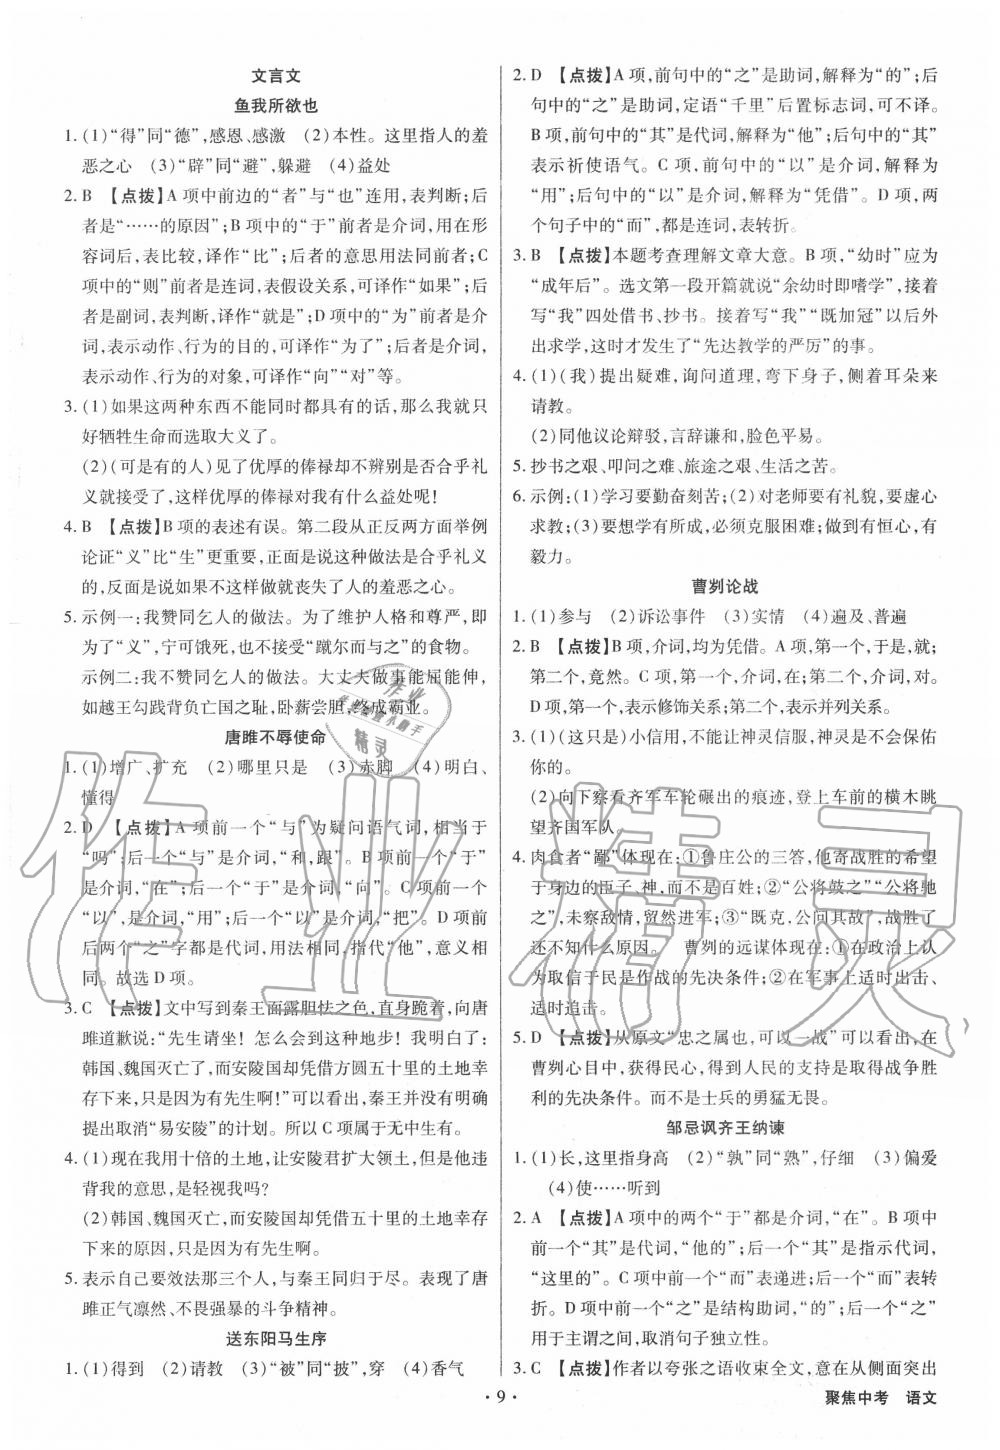 文言文
鱼我所欲也
1. (1)“得”同“德”,感恩、感激　(2)本性。这里指人的羞
恶之心　(3)“辟”同“避”,躲避　(4)益处
2. B　【点拨】A 项中前边的“者”与“也”连用,表判断;后
者是“……的原因”;B 项中的“于”前者是介词,用在形
容词后,表比较,译作“比”;后者的意思用法同前者;C
项中的“则”前者是连词,表假设关系,可译作“如果”;后
者是副词,表判断,译作“就是”;D 项中的“为”前者是介
词,表示动作、行为的目的,可译作“为了”;后者是介词,
表示动作、行为的对象,可译作“向”“对”等。
3. (1)如果这两种东西不能同时都具有的话,那么我就只
好牺牲生命而选取大义了。
(2)(可是有的人)见了优厚的俸禄却不辨别是否合乎礼
义就接受了,这样优厚的俸禄对我有什么益处呢!
4. B　【点拨】B 项的表述有误。第二段从正反两方面举例
论证“义”比“生”更重要,正面是说这种做法是合乎礼义
的,反面是说如果不这样做就丧失了人的羞恶之心。
5. 示例一:我赞同乞人的做法。为了维护人格和尊严,即
为了“义”,宁可饿死,不要受辱“蹴尔而与之”的食物。
示例二:我不赞同乞人的做法。大丈夫做事能屈能伸,
如越王勾践背负亡国之耻,卧薪尝胆,终成霸业。
唐雎不辱使命
1. (1)增广、扩充　(2)哪里只是　(3)赤脚　(4)明白、
懂得
2. D　【点拨】A 项前一个“与”为疑问语气词,相当于
“吗”;后一个“与”是介词,“和,跟”。B 项前一个“于”是
介词,“在”;后一个“于”是介词,“向”。C 项前一个
“以”,是介词,“用”;后一个“以”是介词,“把”。D 项前
后两个“之”字都是代词,用法相同,指代“他”,意义相
同。故选 D 项。
3. C　【点拨】文中写到秦王面露胆怯之色,直身跪着,向唐
雎道歉说:“先生请坐!怎么会到这种地步!我明白了:
韩国、魏国灭亡了,而安陵国却凭借方圆五十里的土地幸
存下来,只是因为有先生啊!”可以看出,秦王并没有明确
提出取消“易安陵”的计划。所以 C 项属无中生有。
4. (1)现在我用十倍的土地,让安陵君扩大领土,但是他违
背我的意思,是轻视我吗?
(2)韩国、魏国灭亡,而安陵国却凭借五十里的土地幸存
下来的原因,只是因为有先生啊!
5. 表示自己要效法那三个人,与秦王同归于尽。表现了唐
雎正气凛然、不畏强暴的斗争精神。
送东阳马生序
1. (1)得到　(2)请教　(3)“被”同“披”,穿　(4)香气
2. D　【点拨】A 项,前句中的“之”是助词,解释为“的”;后
句中的“之”是助词,定语“千里”后置标志词,可不译。
B 项,前句中的“其”是代词,解释为“他”;后句中的“其”
表示祈使语气。C 项,前句中的“以”是介词,解释为
“用”;后句中的“以”是介词,解释为“凭借”。D 项,两
个句子中的“而”,都是连词,表转折。
3. B　【点拨】本题考查理解文章大意。B 项,“幼时”应为
“成年后”。选文第一段开篇就说“余幼时即嗜学”,接着
写“我”四处借书、抄书。接着写“我”“既加冠”以后外
出求学,这时才发生了“先达教学的严厉”的事。
4. (1)(我)提出疑难,询问道理,弯下身子,侧着耳朵来
请教。
(2)同他议论辩驳,言辞谦和,脸色平易。
5. 抄书之艰、叩问之难、旅途之艰、生活之苦。
6. 示例:(1)学习要勤奋刻苦;(2)对老师要有礼貌,要虚心
求教;(3)要想学有所成,必须克服困难;做到有恒心,有
毅力。
曹刿论战
1. (1)参与　(2)诉讼事件　(3)实情　(4)遍及、普遍
2. B　【点拨】B 项,介词,均为凭借。A 项,第一个,于是,就;
第二个,竟然。C 项,第一个,介词,在;第二个,介词,对。
D 项,第一个,表示修饰关系;第二个,表示并列关系。
3. (1)(这只是)小信用,不能让神灵信服,神是不会保佑
你的。
(2)向下察看齐军车轮碾出的痕迹,登上车前的横木眺
望齐国军队。
4. 肉食者“鄙”体现在:①鲁庄公的三答,他寄战胜的希望
于身边的臣子、神,而不是百姓;②“公将鼓之”“公将驰
之”,未察敌情,贸然进军;③“既克,公问其故”,战胜了
还不知什么原因。　曹刿的远谋体现在:①在政治上认
为取信于民是作战的先决条件;②在军事上适时出击、
适时追击。
5. D　【点拨】从原文“忠之属也,可以一战”可以看出,在
曹刿心目中,获得民心,得到人民的支持是获得战争胜
利的先决条件。而不是士兵的勇猛无畏。
邹忌讽齐王纳谏
1. (1)长,这里指身高　(2)“孰”同“熟”,仔细　(3)偏爱
(4)使……听到
2. A　【点拨】A 项中的两个“于”都是介词,“在”。B 项中
前一个“其”是代词,“他的”;后一个“其”是指示代词,
“这里的”。C 项中前一个“而”表递进;后一个“而”表转
折。D 项中前一个“之”是结构助词,“的”;后一个“之”
用于主谓之间,取消句子独立性。
3. C　【点拨】作者以夸张之语收束全文,意在从侧面突出
· 9 ·
聚焦中考　语文
作业精灵
作业
精灵